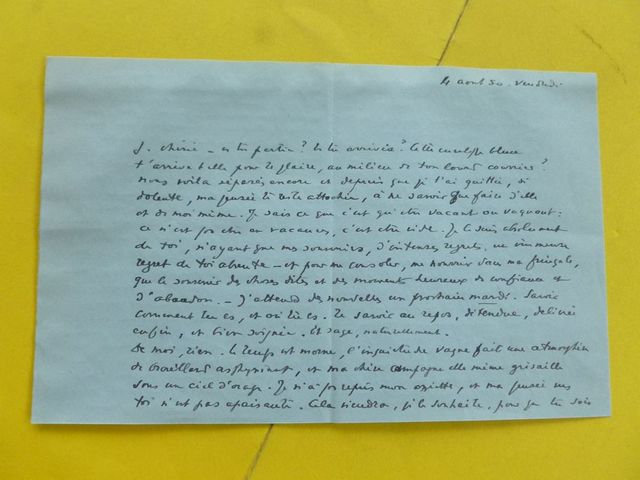 4 août 50. vendredi
J. chérie _ es tu partie? Es tu arrivée? Cette enveloppe bleue
t'arrive t elle pour te plaire, au milieu de ton lourd courrier?
Nous voilà séparés encore et depuis que je t'ai quittée, si
dolente, ma pensée te reste attachée, à ne savoir que faire d'elle
et de moi même. Je sais ce que c'est qu'être vacant ou vaquant:
ce n'est pas être en vacances, c'est être vide. Je le suis absolument
de toi, n'ayant que mes souvenirs, d'intenses regrets, un immense
regret de toi absente _ et pour me consoler, me nourrir dans ma fringale,
que le souvenir des choses dites et des moments heureux de confiance et
d'abandon. _ J'attends des nouvelles un prochain mardi. Savoir
comment tu es, et où tu es. Te savoir au repos, détendue, délivrée
enfin, et bien soignée. Et sage, naturellement.
De moi, rien. Le temps est morne, l'inquiétude vague fait une atmosphère
de brouillard asphyxiant, et ma chère campagne elle même grisaille
sous un ciel d'orage. Je n'ai pas repris mon assiette, et ma pensée vers
toi n'est pas apaisante. Cela viendra, je le souhaite, pour que tu sois